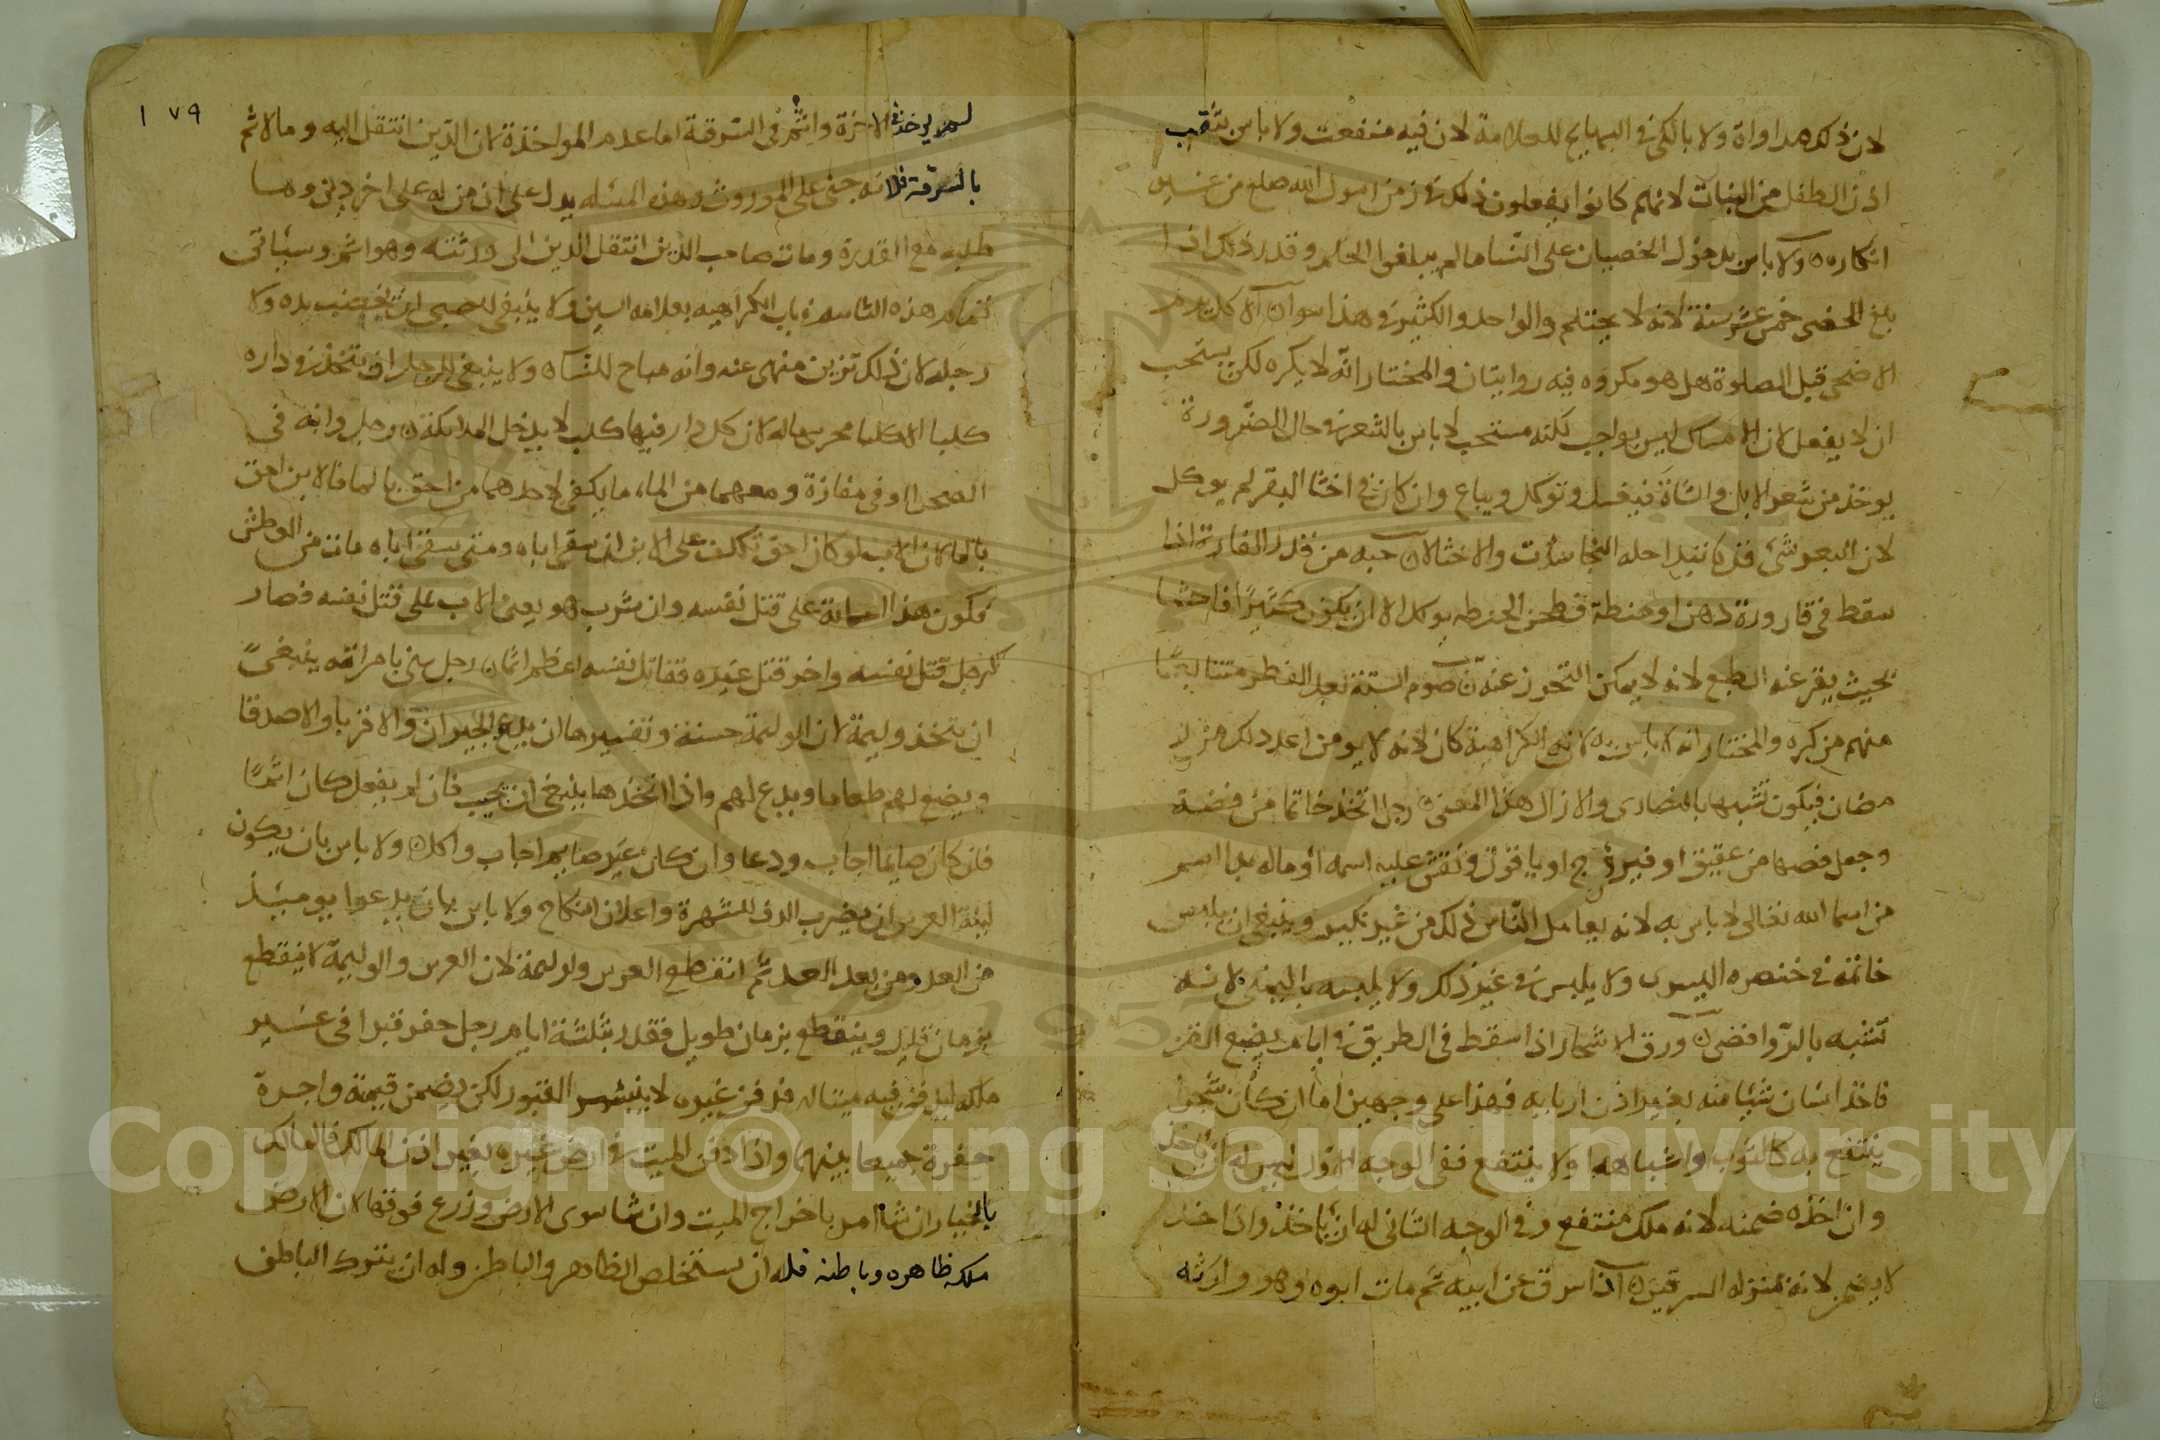 لان ذلك مداواة ولا بالكي في البهايم للعلامة لان فيه منفعت ولا باس بثقب
اذن الطفل من البنات لانهم كانوا يفعلون ذلك في زمن رسول الله صلعم من غير
انكاره ولا باس بدخول الخصيان على النسا مالم يبلغوا الحلم وقدر ذلك اذا
بلغ الخصى خمس عشر سنة لانه لا يحتلم والواحد والكثير في هذا سوا الاكل يوم
الاضحى قبل الصلوة هل هو مكروه فيه روايتان والمختار انه لا يكره لكن يستحب
ان لا يفعل لان الامساك ليس بواجب لكنه مستحب لا باس بالشعير في حال الضرورة
يوخذ من بعر الابل والشاة فيغسل وتوكل ويباع وان كان في اخثا البقر لم يوكل
لان البعر شئ
سقط في قارورة دهن او حنطة فطحن الحنطه يوكل الا ان يكون كثيرا فاحشا
بحيث يفر عنه الطبع لانه لا يمكن التحرز عنه صوم الستة بعد الفطر متتابعا
منهم من كره والمختار انه لا باس به لان الكراهية كان لانه لا يومن ان يعد ذلك من ر
مضان فيكون تشبها بالنصارى والان زال هذا المعنى رجل اتخذ خاتما من فضة
وجعل فصها من عقيق او فيروزج او ياقوت ونقش عليه اسمه او ماله بدا اسم
من اسما الله تعالى لا باس به لانه يعامل الناس ذلك من غير نكير وينبغي ان يلبس
خاتمه في خنصره اليسرى ولا يلبس في غير ذلك ولا يلبسه باليمنى لانه
تشبه بالروافض ورق الاشجار اذا سقط في الطريق في ايام يضع القز
فاخذ انسان شيئا منه بغير اذن اربابه فهذا على وجهين اما ان كان شجرا
ينتفع به كالتوت واشباهه او لا ينتفع ففي الوجه الاول ليس له ان ياخذ
وان اخذه ضمنه لانه ملك منتفع وفي الوجه الثاني له ان ياخذ واذا اخذ
لا يضمن لانه بمنزله السرقين اذا سرق عن ابيه ثم مات ابوه وهو وارثه
١٧٩
لم يوخذ في الاخرة واثم في السرقة اما عدم المواخذة لان الدين انتقل اليه وما لاثم
بالسرقة فلانه جنى على الموروث وهذه المسئله يدل على ان من له على اخر دين وهما
طلبه مع القدرة ومات صاحب الدين انتقل الدين الى ورثته وهو اثم وسياتى
تمام هذه في باب الكراهيه ولا ينبغي للصبى ان يخضب يده ولا
رجله لان ذلك تزين منهى عنه وانه مباح للنساء ولا ينبغي للرجل ان يتخذ في داره
كلبا الا كلبا يحرس ماله لان كل دار فيها كلب لا يدخل الملايكة رجل وابنه في
الصحرا او في مفازة ومعهما من الماء ما يكفى لاحدهما من احق بالما قالابن احق
بالما لان الاب لو كان احق تكلف على الابن ان سقى اباه ومتى سقى اباه مات من العطش
فكون هذا اعانة على قتل نفسه وان شرب هو يعين الاب على قتل نفسه فصار
كرجل قتل نفسه واخر قتل غيره فقاتل نفسه اعظم اثما رجل بنى بامراته ينبغي
ان يتخذ وليمة لان الوليمة حسنة وتفسيرها ان يدع الجيران والاقربا والاصدقا
ويضع لهم طعاما ويدع لهم واذا اتخذها ينبغي ان يجيب فان لم يفعل كان اثما
فان كان صايما اجاب ودعا وان كان غير صايم اجاب واكل ولا باس بان يكون
ليلة العرس ان يضرب الدف للشهرة واعلان النكاح ولا باس بان يدعوا يوميئذ
من الغد ومن بعد الغد ثم انقطع العرس والوليمة لان العرس والوليمة لا ينقطع
بزمان قليل وينقطع بزمان طويل فقدر بثلثة ايام رجل حفر قبرا في غير
ملكه ليدفن فيه ميتا له فدفن غيره لا ينبش القبور لكن يضمن قيمة واجرة
حفرة جميعا بينهما واذا دفن الميت في ارض غيره بغير اذن المالك فالمالك
بالخيار ان شا امر باخراج الميت وان شا سوى الارض وزرع فوقها لان الارض
ملكه ظاهره وباطنه فله ان يستخلص الظاهر والباطن وله ان يتوك الباطن
Copyright © King Saud University
1957